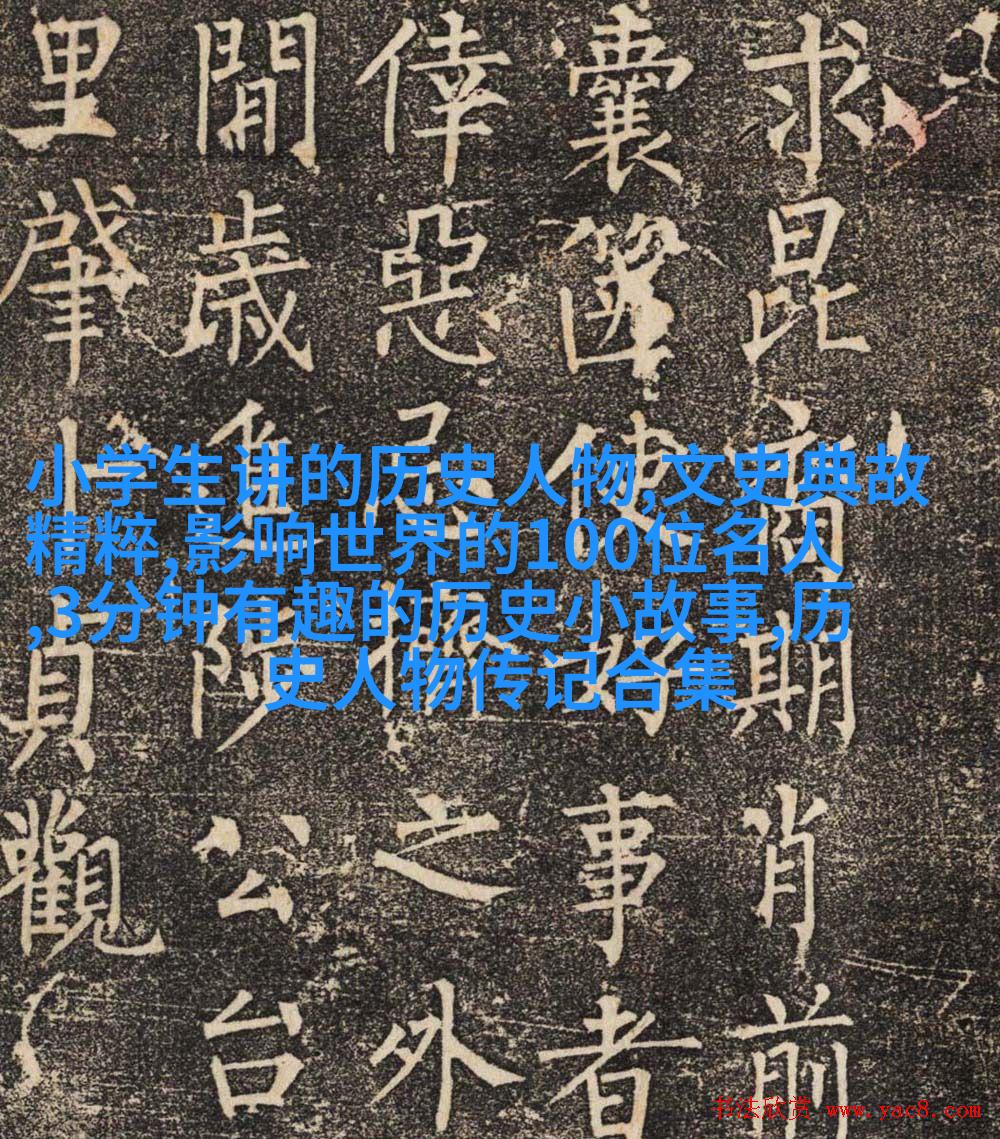 小学生讲的历史人物,文史典故
精粹,影响世界的100位名人
,3分钟有趣的历史小故事,历
史人物传记合集
求昆期肖前
囊篋使好事者
倖惡忌之外
閒歲公台
里肇貞觀
书法欣赏 www.yac8.com